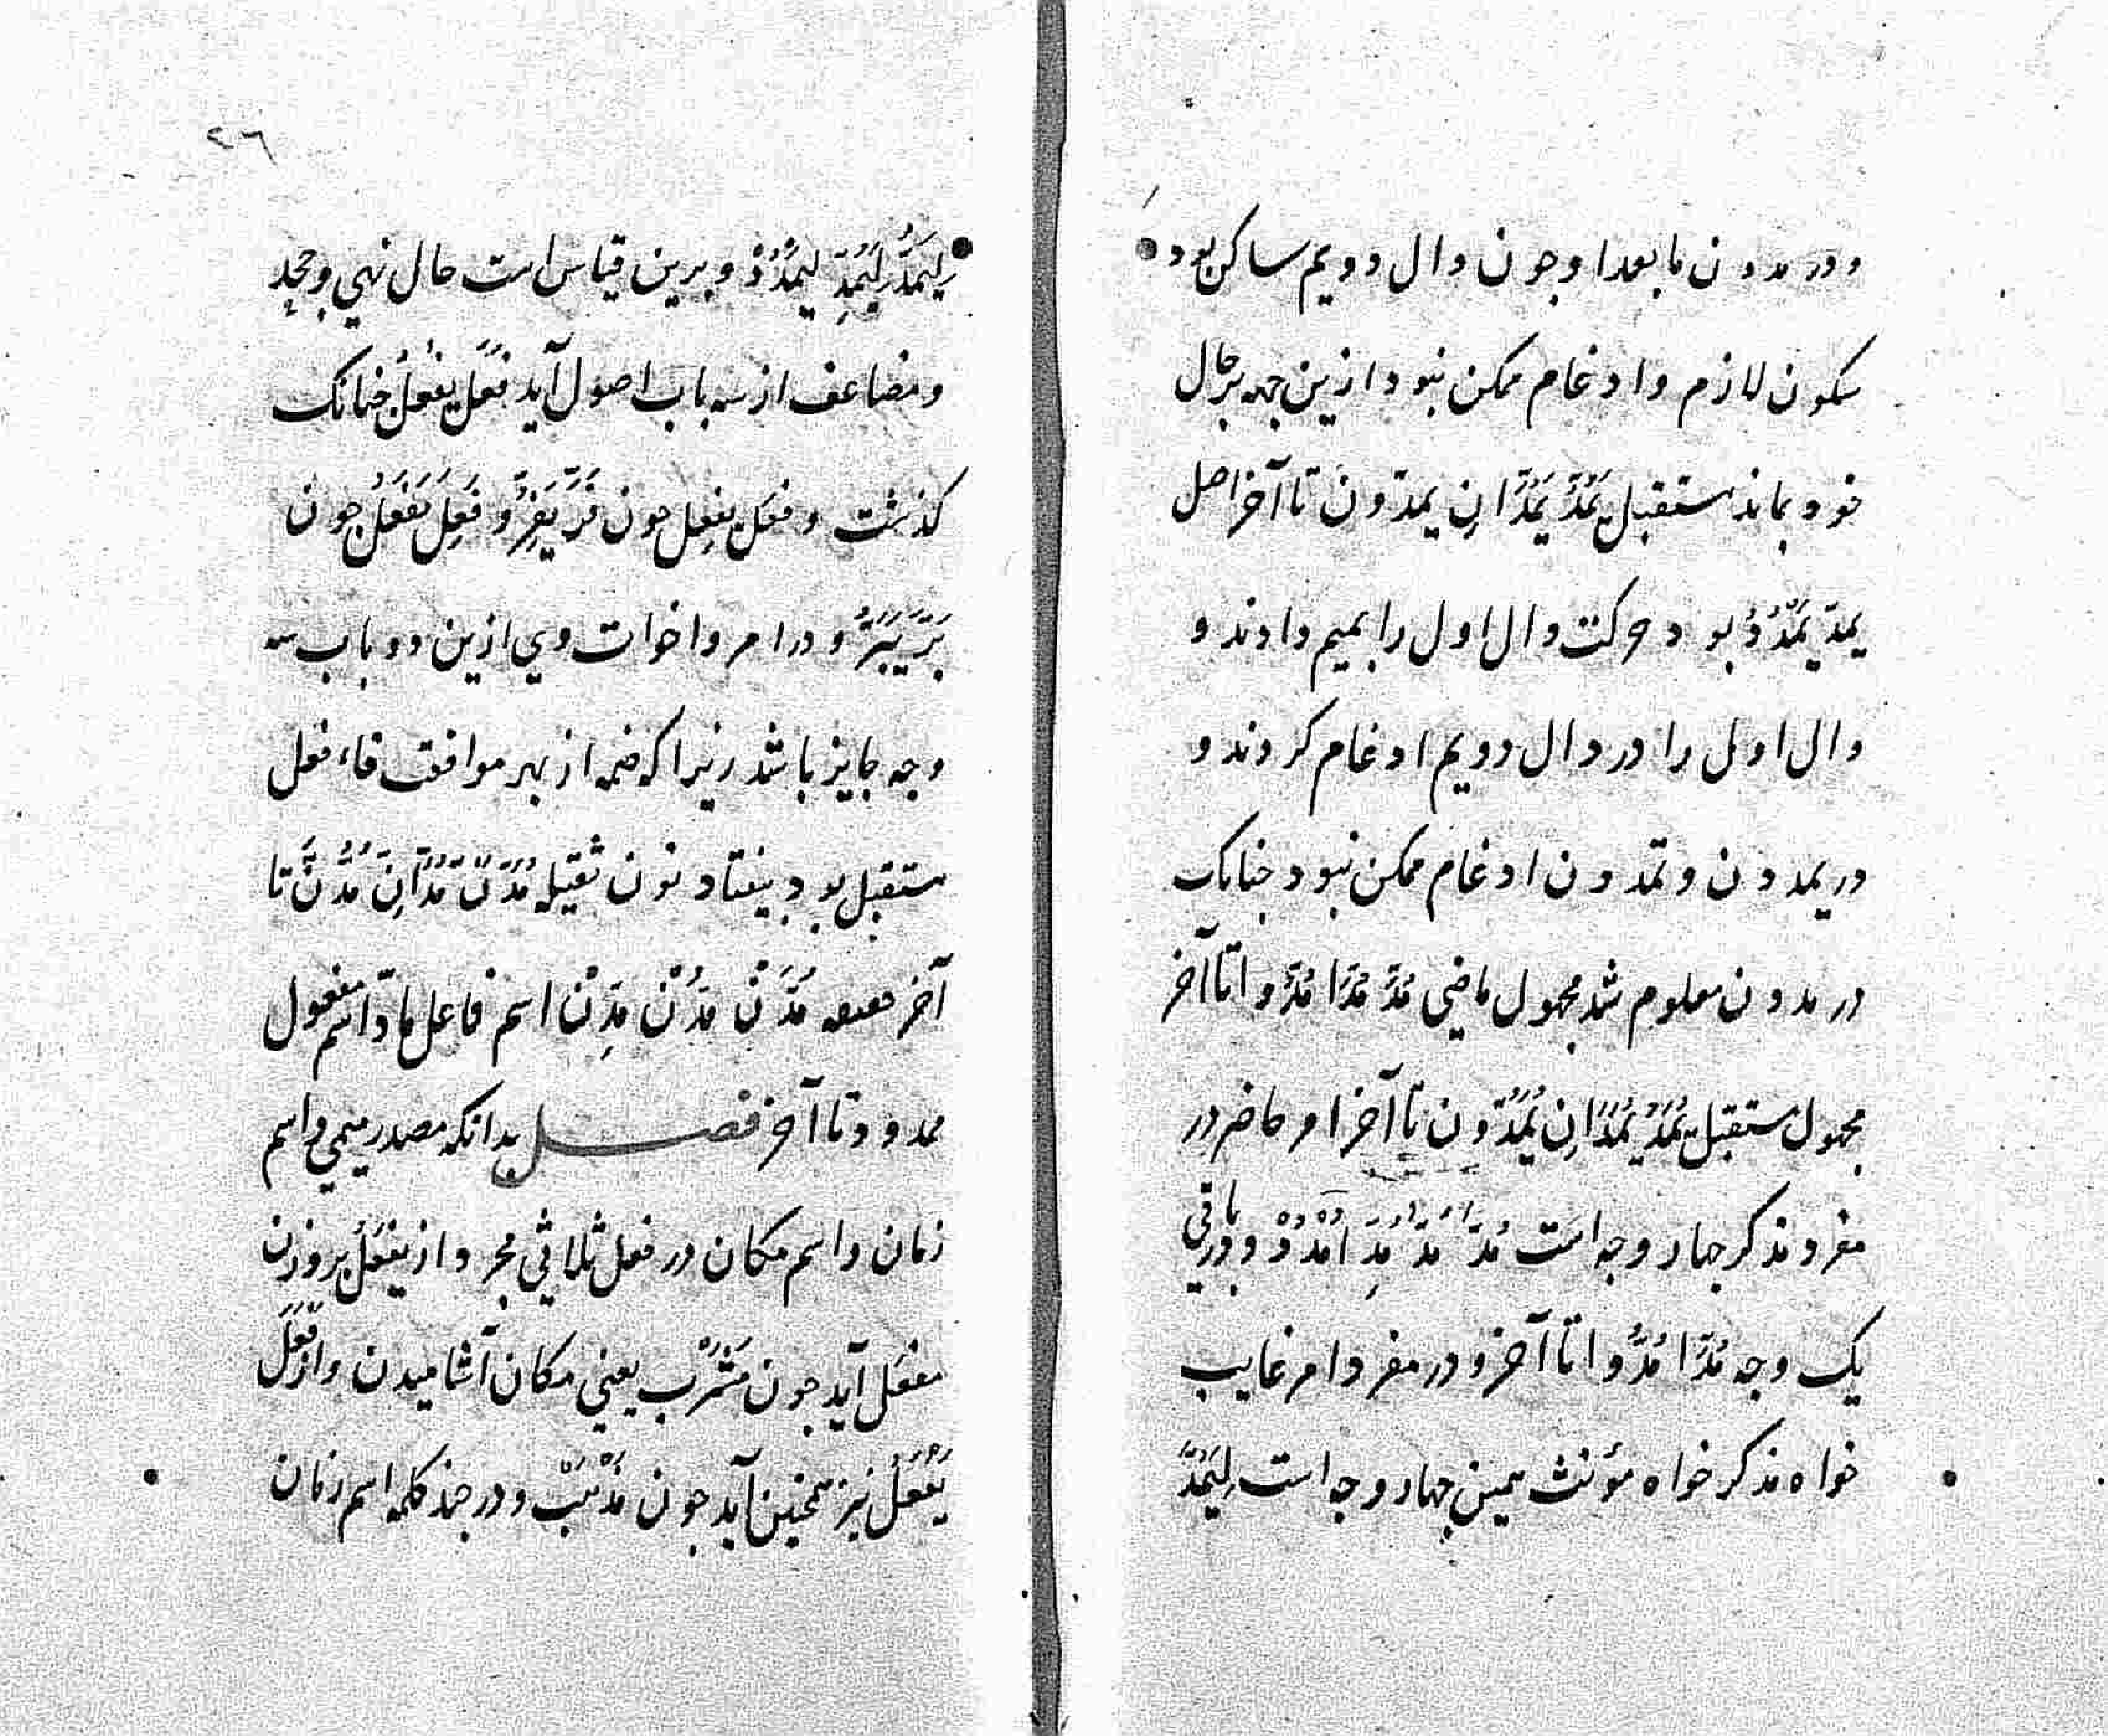 و در مددن ما بعدا و جون دال دویم ساکن بود
سکون لازم و ادغام ممکن نبود ازین جهه بر حال
خود بماند مستقبل یَمُدُّ یَمُدَّانِ یمدّون تا آخر اصل
یمدّ یَمْدُدُ بود حرکت دال اول را بمیم دادند و
دال اول را در دال دویم ادغام کردند و
در یمددن و تمددن ادغام ممکن نبود جنانک
در مددن معلوم شد مجهول ماضی مُدَّ مُدَّا مُدُّوا تا آخر
مجهول مستقبل یُمَدُّ یُمَدَّانِ یُمَدُّونَ تا آخر امر حاضر در
مفرد مذکر جهار وجه است مُدَّ مُدُّ مُدِّ اُمْدُدْ و در باقی
یک وجه مُدَّا مُدُّوا تا آخر و در مفرد امر غایب
خواه مذکر خواه مؤنث همین جهار وجه است لِیَمُدَّ
٢٦
لِیَمُدُّ لِیَمُدِّ لِیَمْدُدْ و برین قیاس است حال نهی و جحد
و مضاعف از سه باب اصول آید فَعَلَ یَفْعُلُ جنانک
کذشت و فعَل یفعِل جون فَرَّ یَفِرُّ و فَعِلَ یَفْعَلُ جون
بَرَّ یَبَرُّ و در امر و اخوات وی ازین دو باب سه
وجه جایز باشد زیرا که ضمه از بهر موافقت فاء فعل
مستقبل بود بیفتاد نون ثقیله مُدَّنَّ مُدَّانِّ مُدُّنَّ تا
آخر خفیفه مُدَّنْ مُدُّنْ مُدِّنْ اسم فاعل مادّ اسم مفعول
ممدود تا آخر فصل بدانکه مصدر میمی و اسم
زمان و اسم مکان در فعل ثلاثی مجرد از یَفْعَلُ بر وزن
مفعَل آید جون مَشْرَبْ یعنی مکان آشامیدن و از فَعَلَ
یَفْعُلُ نیز همجنین آید جون مَذْهَبْ و در جند کلمه اسم زمان